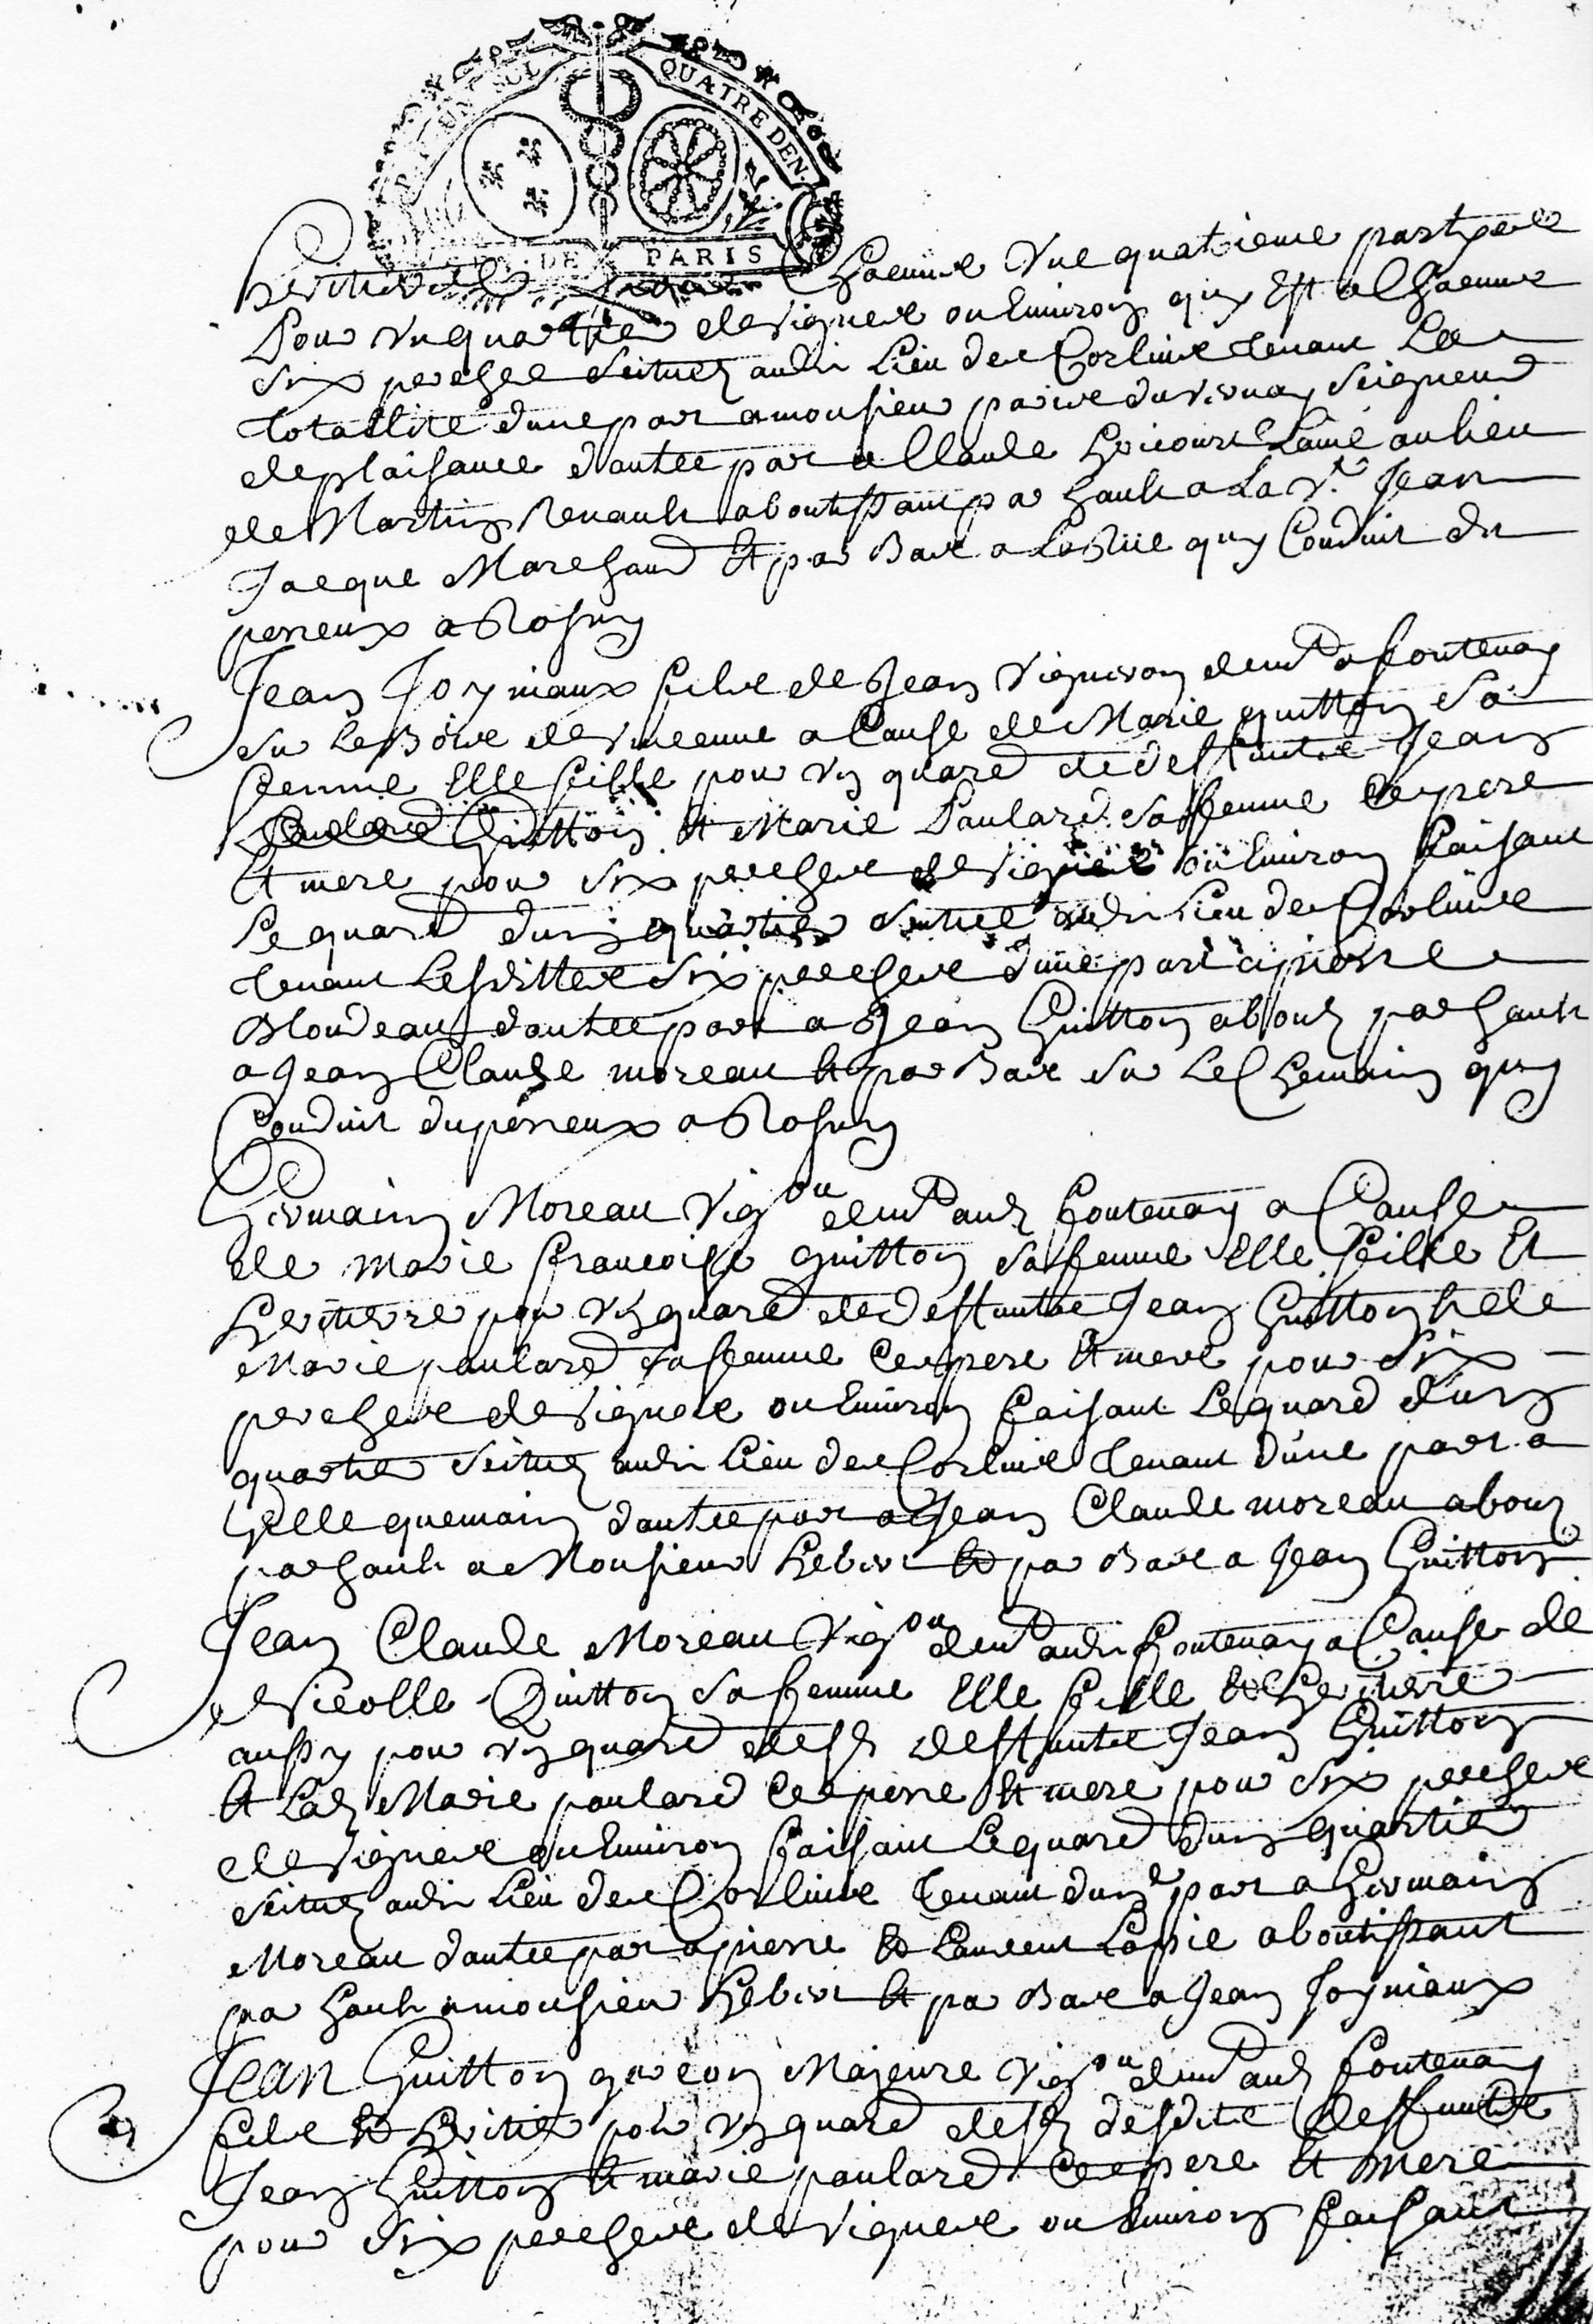 QUATRE DEN.
DE PARIS
heritiers chacune une quatrieme partye
Pour un quartier de vignes ou Environ quy Est a Chacune
six perches scituez audit Lieu des Corlins tenant La
totallité dune part a monsieur paris du vernay Seigneur
de plaisance dautre part a Claude hericourt Lainé au lieu
de Martin Renault aboutissant par hault a La Ve Jean
Jacque Marchand Et par Bas a La Rüe quy Conduit du
perreux a Rosny
Jean Joyniaux fils de Jean Vigneron demt a fontenay
sur Les Bois de vincenne a Cause de Marie guitton sa
femme Elle fille pour un quard de deffuntes Jean
Guitton Et Marie Paulard sa femme Ces pere
Et mere pour six perches de vignes ou Environ faisant
Le quard dun quartier scitué audit Lieu des Corlins
tenant Lesdittes six perches dune part a pierre
Blondeau dautre part a Jean Guitton abouz par hault
a Jean Claude moreau Et par Bas sur Le Chemain quy
Conduit du perreux a Rosny
Germain Moreau Vigon demt audt fontenay a Cause
de Marie francoise guitton sa femme Elle fille Et
heritierre pour un quard de deffuntes Jean Guitton Et de
Marie paulard sa femme Ces pere Et mere pour six
perches de vignes ou Environ faisant Le quard d'un
quartier scituez audit Lieu des Corlins tenant dune part a
Gille quemain dautre part a Jean Claude moreau abouz
par hault a Monsieur hebert Et par Bas a Jean Guitton
Jean Claude Moreau Vigon demt audit fontenay a Cause de
Nicolle Quitton sa femme Elle fille Et heritierre
aussy pour un quard desd deffuntes Jean Guitton
Et Lad Marie paulard Ces perre Et mere pour six perches
de vignes ou Environ faisant Le quard dun quartier
scituez audit Lieu des Corlins tenant dune part a Germain
Moreau dautre part a pierre Et Laurent Lapie aboutissant
par hault a monsieur hebert Et par Bas a Jean Joyniaux
Jean Guitton garcon Majeure vigon demt aud fontenay
fils Et heritier pour un quard desd desdits deffuntes
Jean Guitton Et marie paulard Ces pere Et mere
pour six perches de vignes ou Environ faisant